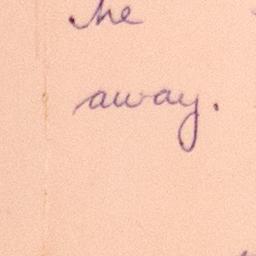 he
away.